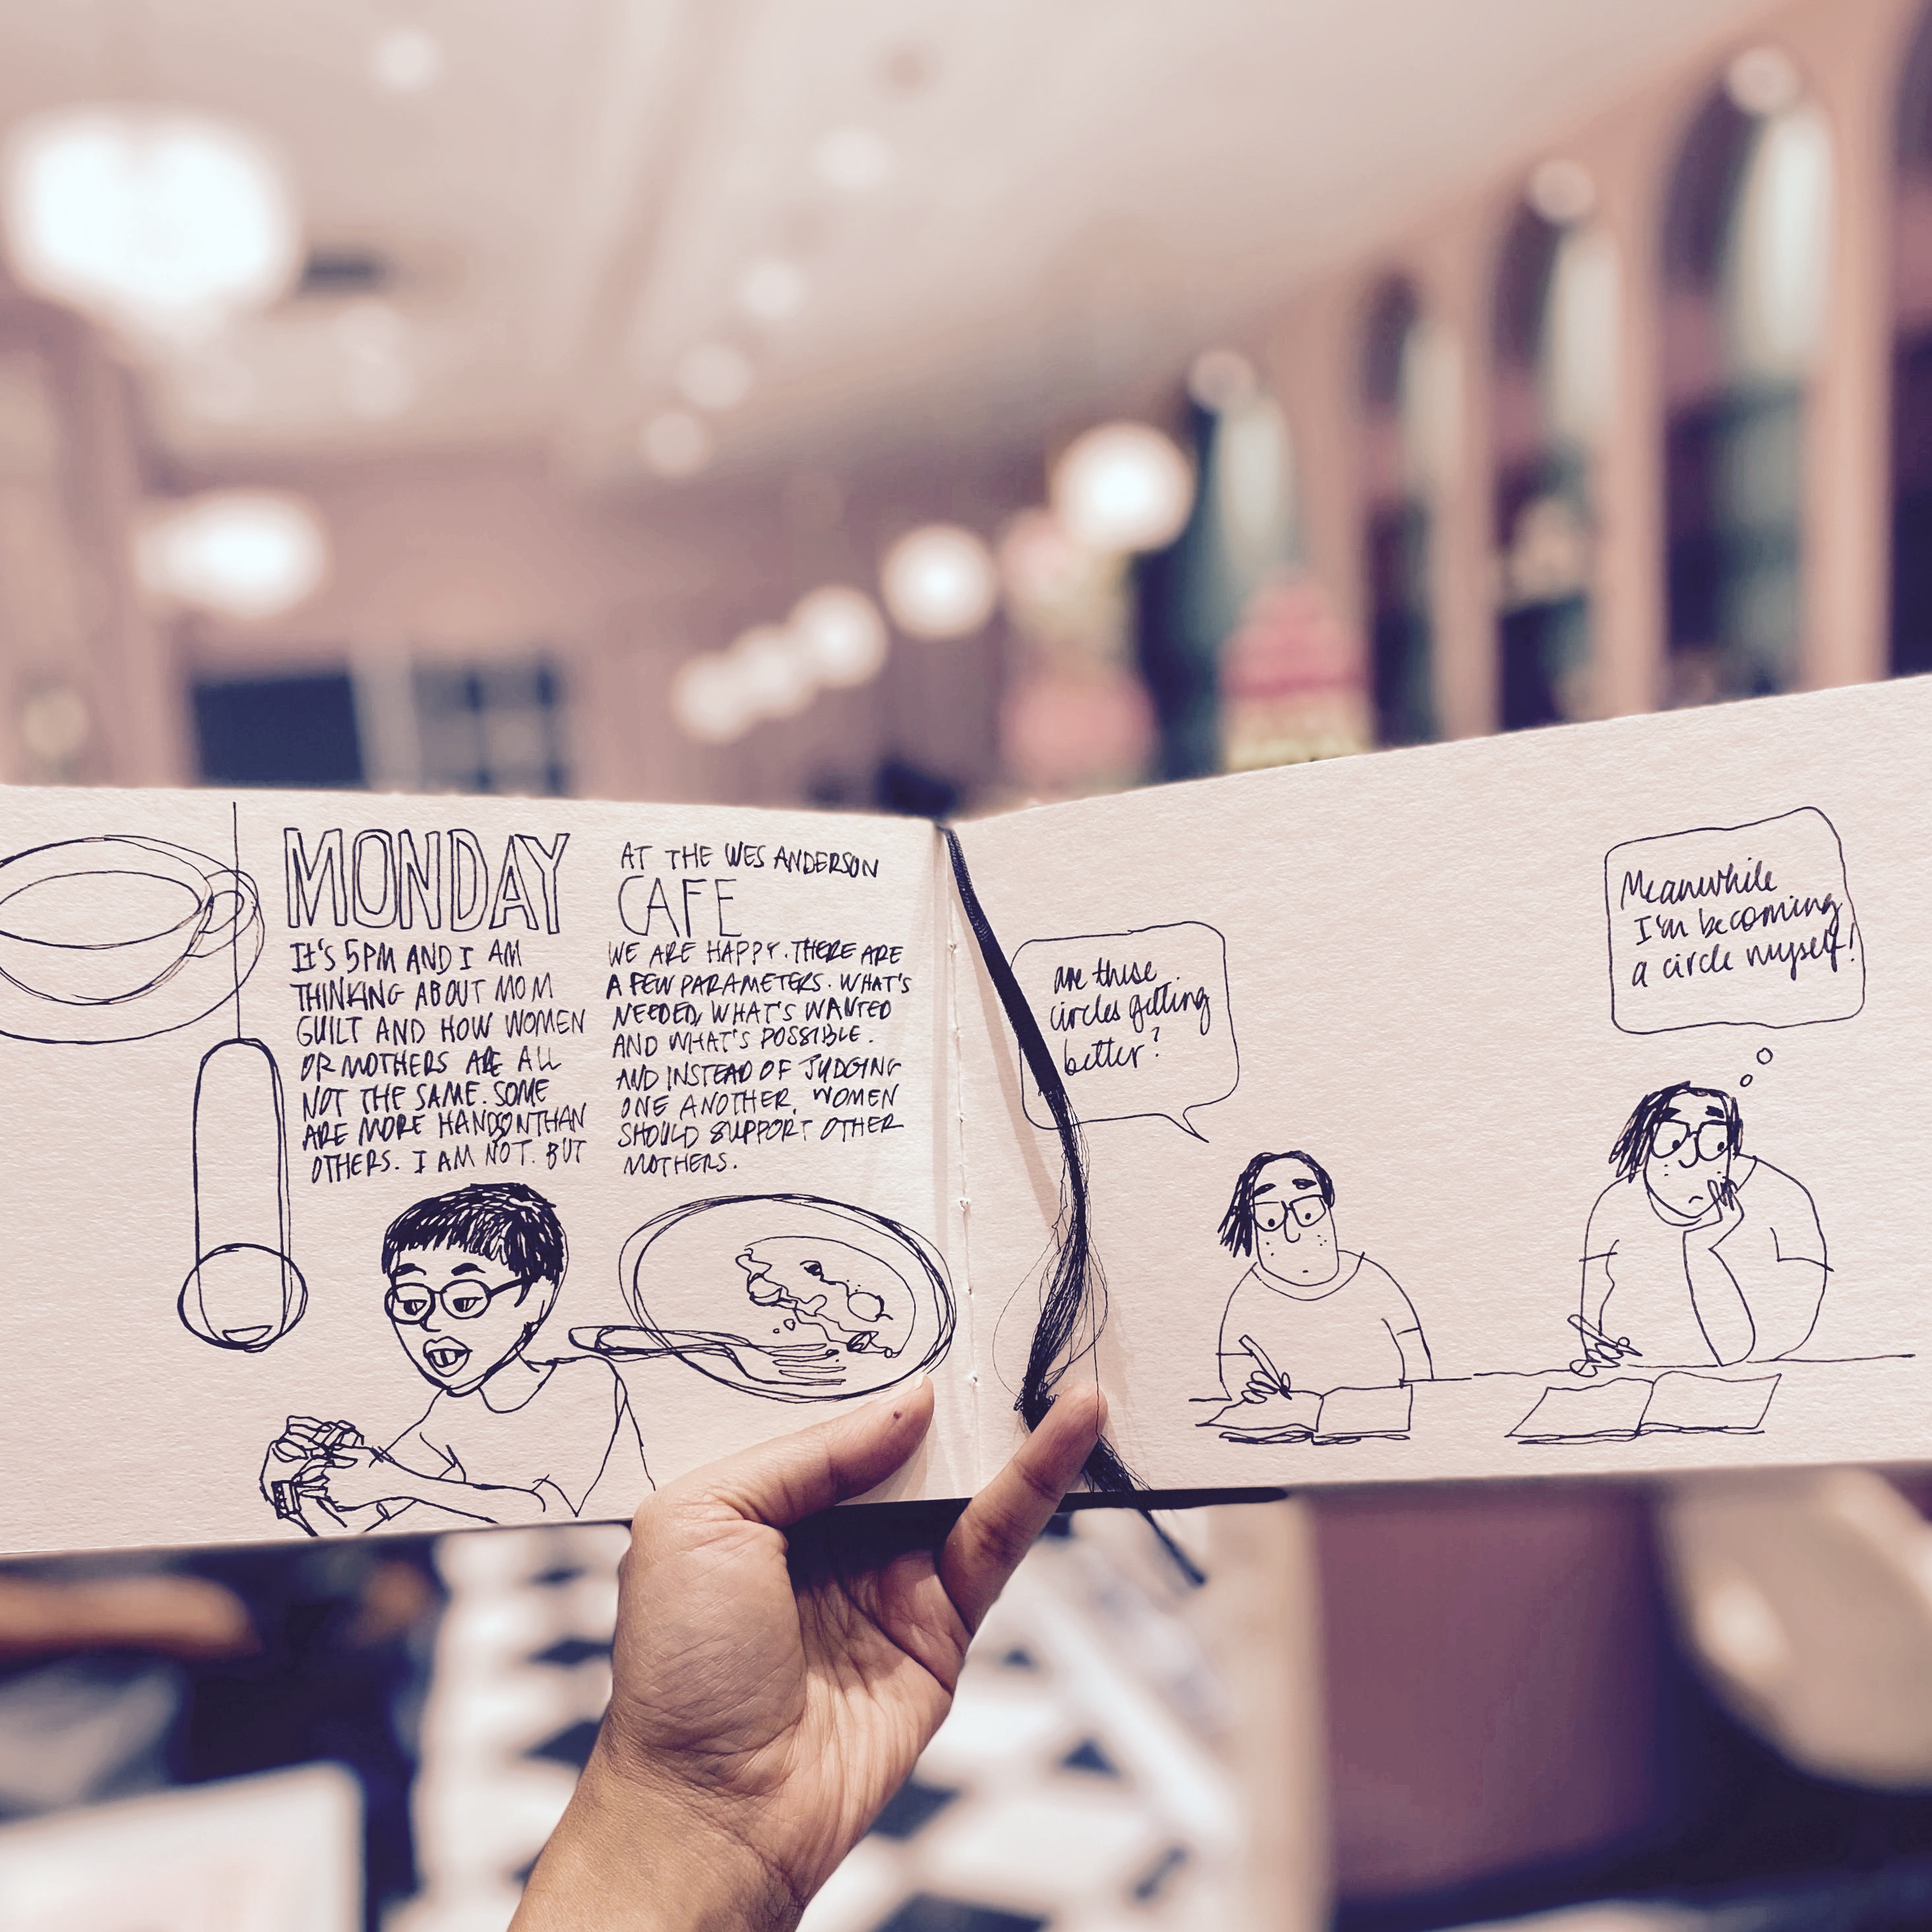 MONDAY
IT'S 5PM AND I AM
THINKING ABOUT MOM
GUILT AND HOW WOMEN
OR MOTHERS ARE ALL
NOT THE SAME. SOME
ARE MORE HANDSON THAN
OTHERS. I AM NOT. BUT
AT THE WES ANDERSON
CAFE
WE ARE HAPPY. THERE ARE
A FEW PARAMETERS. WHAT'S
NEEDED, WHAT'S WANTED
AND WHAT'S POSSIBLE.
AND INSTEAD OF JUDGING
ONE ANOTHER, WOMEN
SHOULD SUPPORT OTHER
MOTHERS.
are these
circles getting
better?
Meanwhile
I'm becoming
a circle myself!